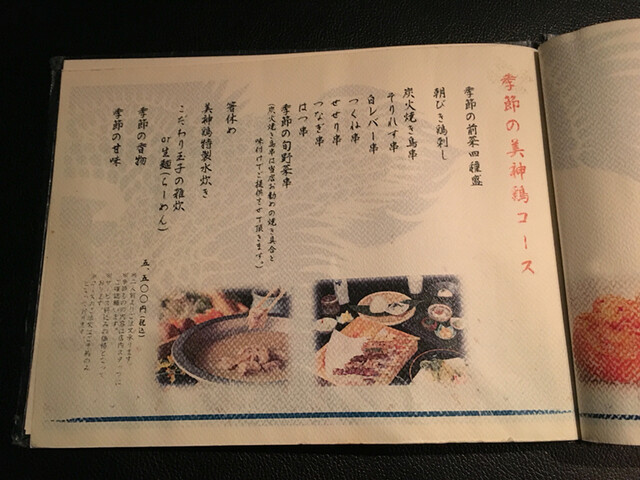 季節の美神鶏コース
季節の前菜四種盛
朝びき鶏刺し
炭火焼き鳥串
そりれす串
白レバー串
つくね串
せせり串
つなぎ串
はつ串
季節の旬野菜串
(炭火焼き鳥串は当店お勧めの焼き具合と
味付けでご提供させて頂きます。)
箸休め
美神鶏特製水炊き
こだわり玉子の雑炊
or 生麺(らーめん)
季節の香物
季節の甘味
五、五〇〇円(税込)